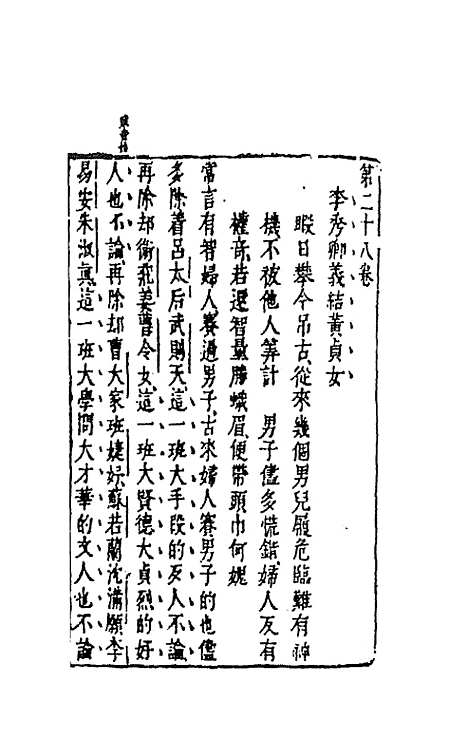 第二十八卷
李秀卿義結黃貞女
暇日攀今吊古從來幾個男兒履危臨難有神
機不被他人筭計　男子儘多慌錯婦人反有
權竒若還智量勝蛾眉便帶頭巾何媿
常言有智婦人賽過男子古來婦人賽男子的也儘
多除着呂太后武則天這一班大手段的歹人不論
再除却衛飛姜曹令女這一班大賢德大貞烈的好
人也不論再除却曹大家班婕妤蘇若蘭沈滿願李
易安朱淑真這一班大學問大才華的文人也不論